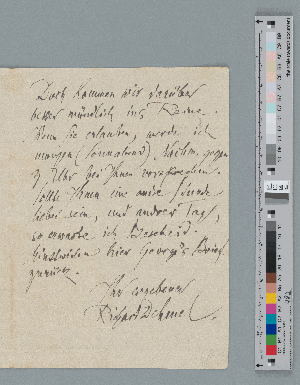 Doch kommen wir darüber
besser mündlich ins Reine.
Wenn Sie erlauben, werde ich
morgen (Sonnabend) Nachm. gegen
Uhr bei Ihnen vorsprechen.
Sollte Ihnen eine andre Stunde
lieber sein, und andrer Tag,
so erwarte ich Bescheid.
Einstweilen hier George's Brief
zurück.
Ihr ergebener
Richard Dehmel.